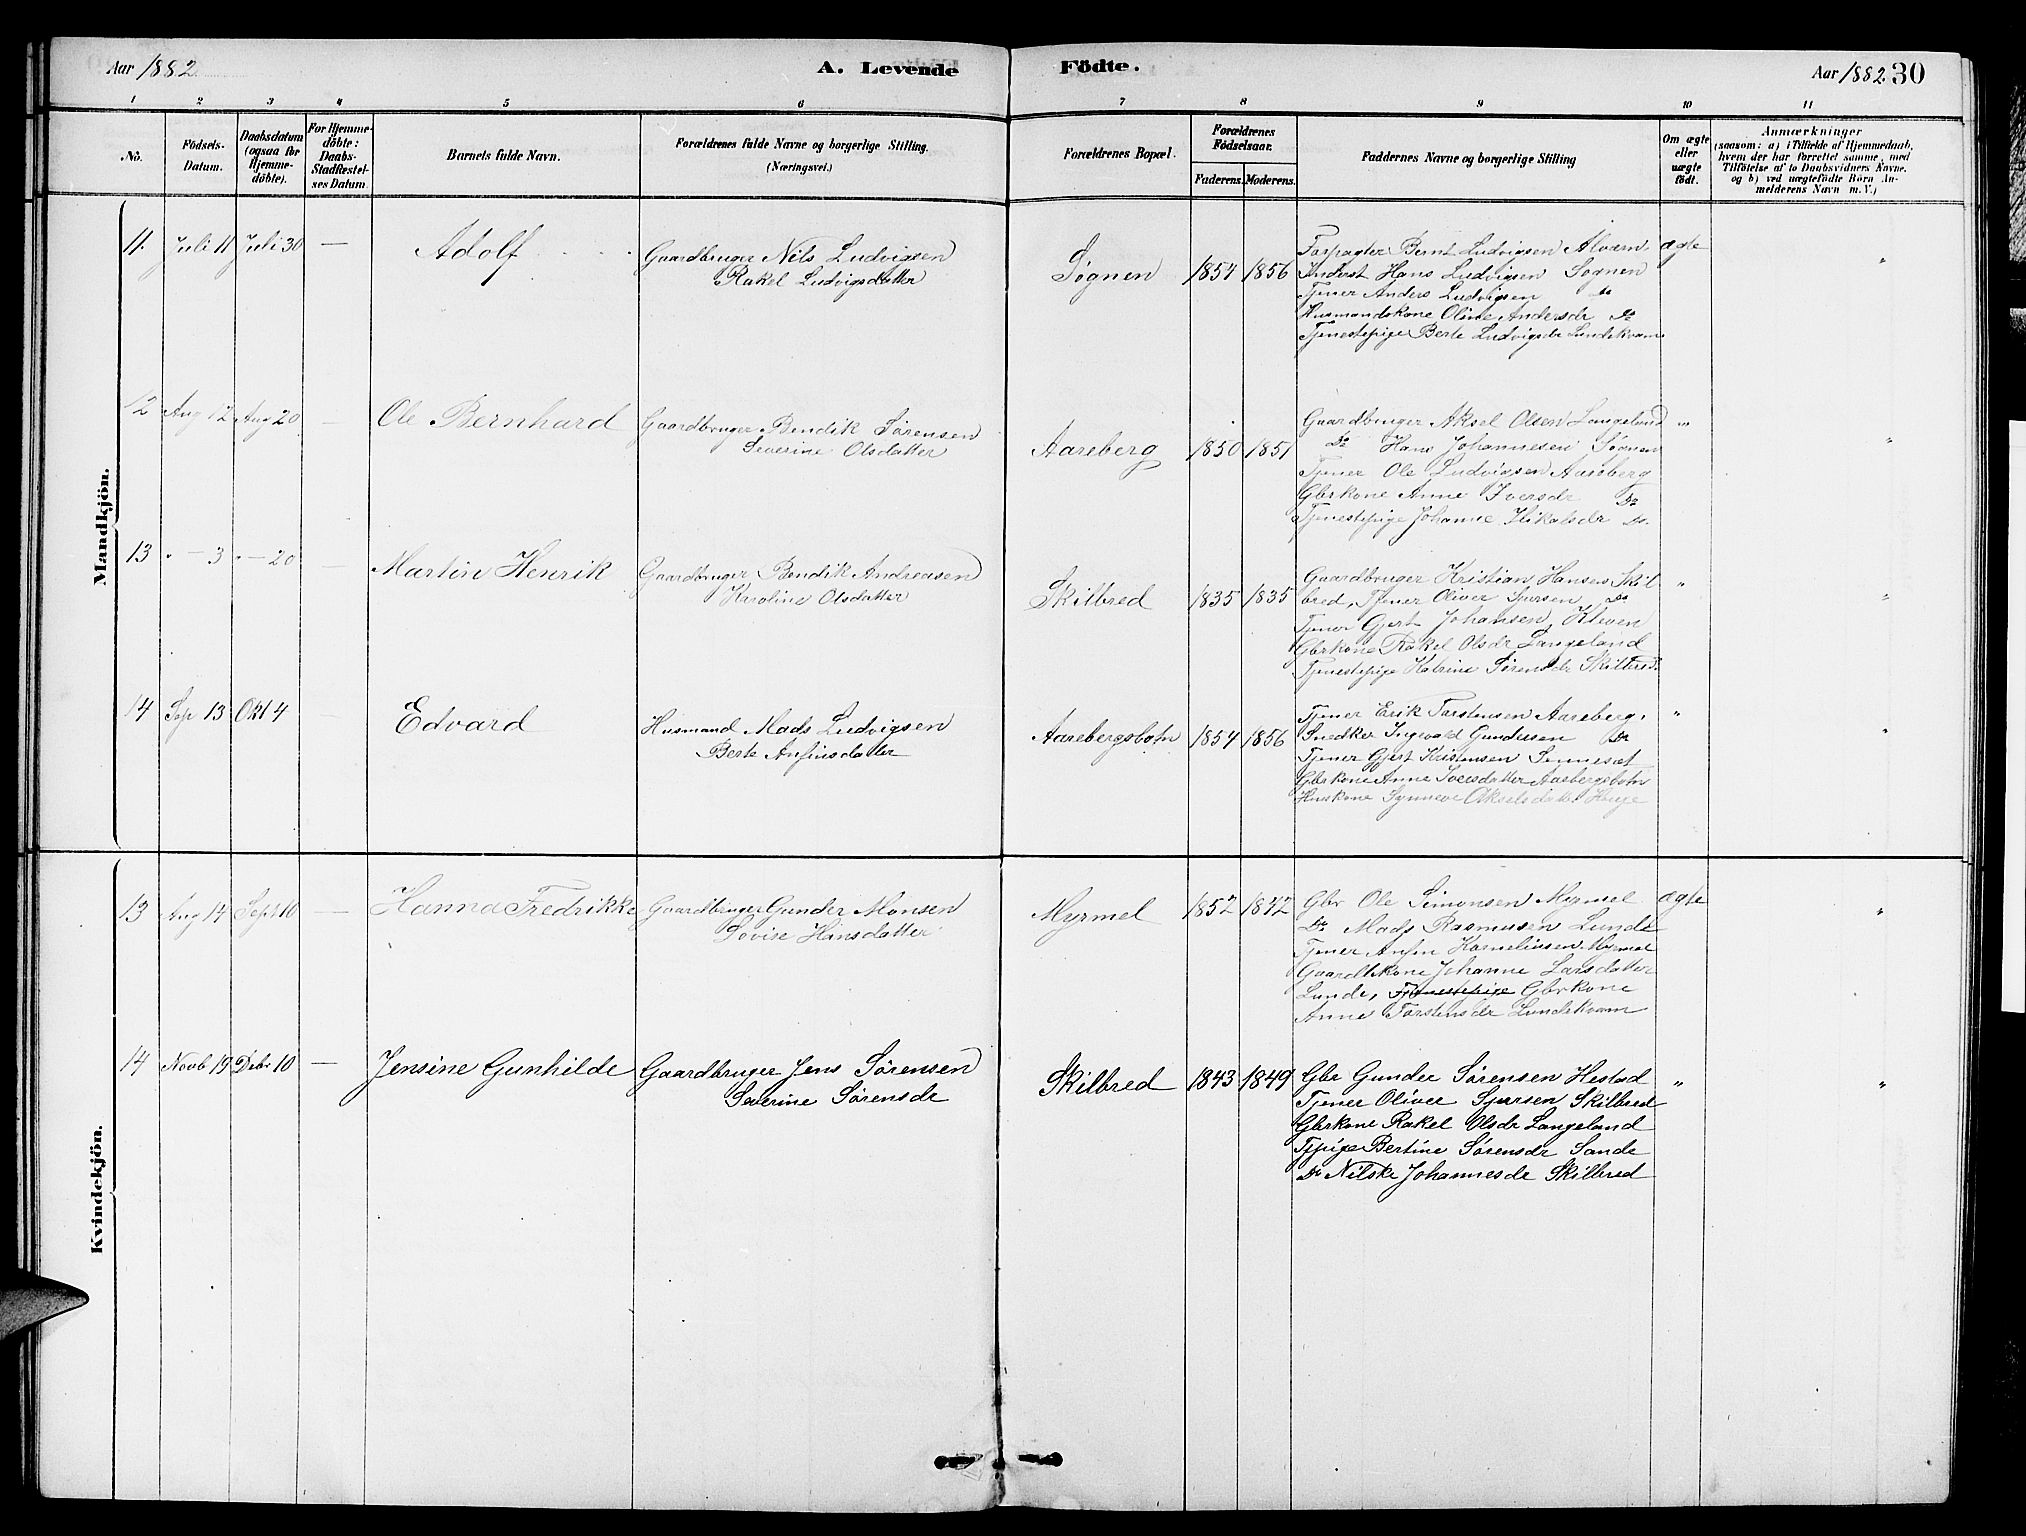 Aar 1882 A. Levende Födte. Aar 1882. 30
1 2 3 4 5 6 7 8 9 10 11
No.
Födsels-
Datum.
Daabsdatum
(ogsaa for
Hjemme-
döbte).
For Hjemme-
döbte:
Daabs-
Stadfæstel-
ses Datum.
Barnets fulde Navn.
Forældrenes fulde Navne og borgerlige Stilling.
(Næringsvei.)
Forældrenes Bopæl.
Forældrenes
Födselsaar.
Faderens. Moderens.
Faddernes Navne og borgerlige Stilling
Om ægte
eller
uægte
födt.
Anmærkninger
(saasom: a) i Tilfælde af Hjemmedaab,
hvem der har forrettet samme, med
Tilföielse af to Daabsvidners Navne.
og b) ved uægtefödte Börn An-
melderens Navn m. V.)
Mandkjön.
11. Juli 11 Juli 30 — Adolf
Gaardbruger Nils Ludvigsen
Rakel Ludvigsdatter
Søgnen 1854 1856
Forpagter Bernt Ludvigsen Alværn
Hans Ludvigsen Sognen
Tjener Anders Ludvigsen Do
Husmandskone Oline Andersdr Do
Tjenestepige Berte Ludvigsdr Lundekvam
ægte "
12 Aug 12 Aug 20 — Ole Bernhard
Gaardbruger Bendik Sørensen
Severine Olsdatter
Aareberg 1850 1851
Gaardbruger Aksel Olsen Langeland
Do Hans Johannesen Søgnen
Tjener Ole Ludvigsen Aareberg
Gbrkone Anne Iversdr Do
Tjenestepige Johanne Do.
" "
13 " — 3 " — 20 — Martin Henrik
Gaardbruger Bendik Andreasen
Karoline Olsdatter
Skilbred 1835 1835
Gaardbruger Kristian Hansen Skil
bred, Tjener Oliver Sjursen Do
Tjener Gjert Johansen, Kleven
Gbrkone Rakel Olsdr Langeland
Tjenestepige Katrine Sørensdr Skilbred
" "
14 Sep 13 Okt 4 — Edvard
Husmand Mads Ludvigsen
Berte Anfinsdatter
Aarebergsbotn 1854 1856
Tjener Erik Torstensen Aareberg.
Snedker Ingevald Gundersen Do
Tjener Gjert Kristensen
Gbrkone Anne Iversdatter Aarebergsbotn
Huskone Synneve Akselsdatter Hauge
" "
Kvindekjön.
13 Aug 14 Sept 10 — Hanna Fredrikke
Gaardbruger Gunder Monsen
Lovise Hansdatter
Myrmel 1852 1842
Gbr Ole Simonsen Myrmel
Do Mads Rasmusen Lunde
Tjener Anfin Korneliusen Myrmel
Gaardbkone Johanne Larsdatter
Lunde, Tjenestepige Gbrkone
Anne Torstensdr Lundekvam
ægte "
14 Novb 19 Debr 10 — Jensine Gunhilde
Gaardbruger Jens Sørensen
Severine Sørensdr
Skilbred 1843 1849
Gbr Gunder Sørensen Hestad
Tjener Oliver Sjursen Skilbred
Gbrkone Rakel Olsdr Langeland
Tjpige Bertine Sørensdr Sande
Do Nilske Johannesdr Skilbred
" "